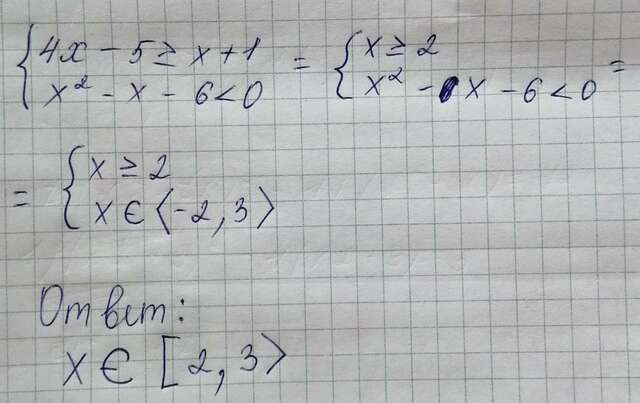 { 4x - 5 ≥ x + 1 = { x ≥ 2
x² - x - 6 < 0 x² - x - 6 < 0 =
= { x ≥ 2
x ∈ ⟨-2, 3⟩
Ответ:
x ∈ [2, 3⟩